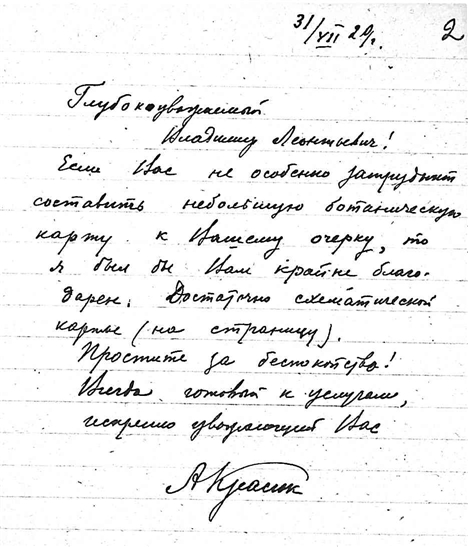 31/VII 29г. 2
Глубокоуважаемый
Владимир Леонтьевич!
Если Вас не особенно затруднит
составить небольшую ботаническую
карту к Вашему очерку, то
я был бы Вам крайне благо-
дарен. Достаточно схематической
карты (на страницу).
Простите за беспокойство!
Всегда готовый к услугам,
искренно уважающий Вас